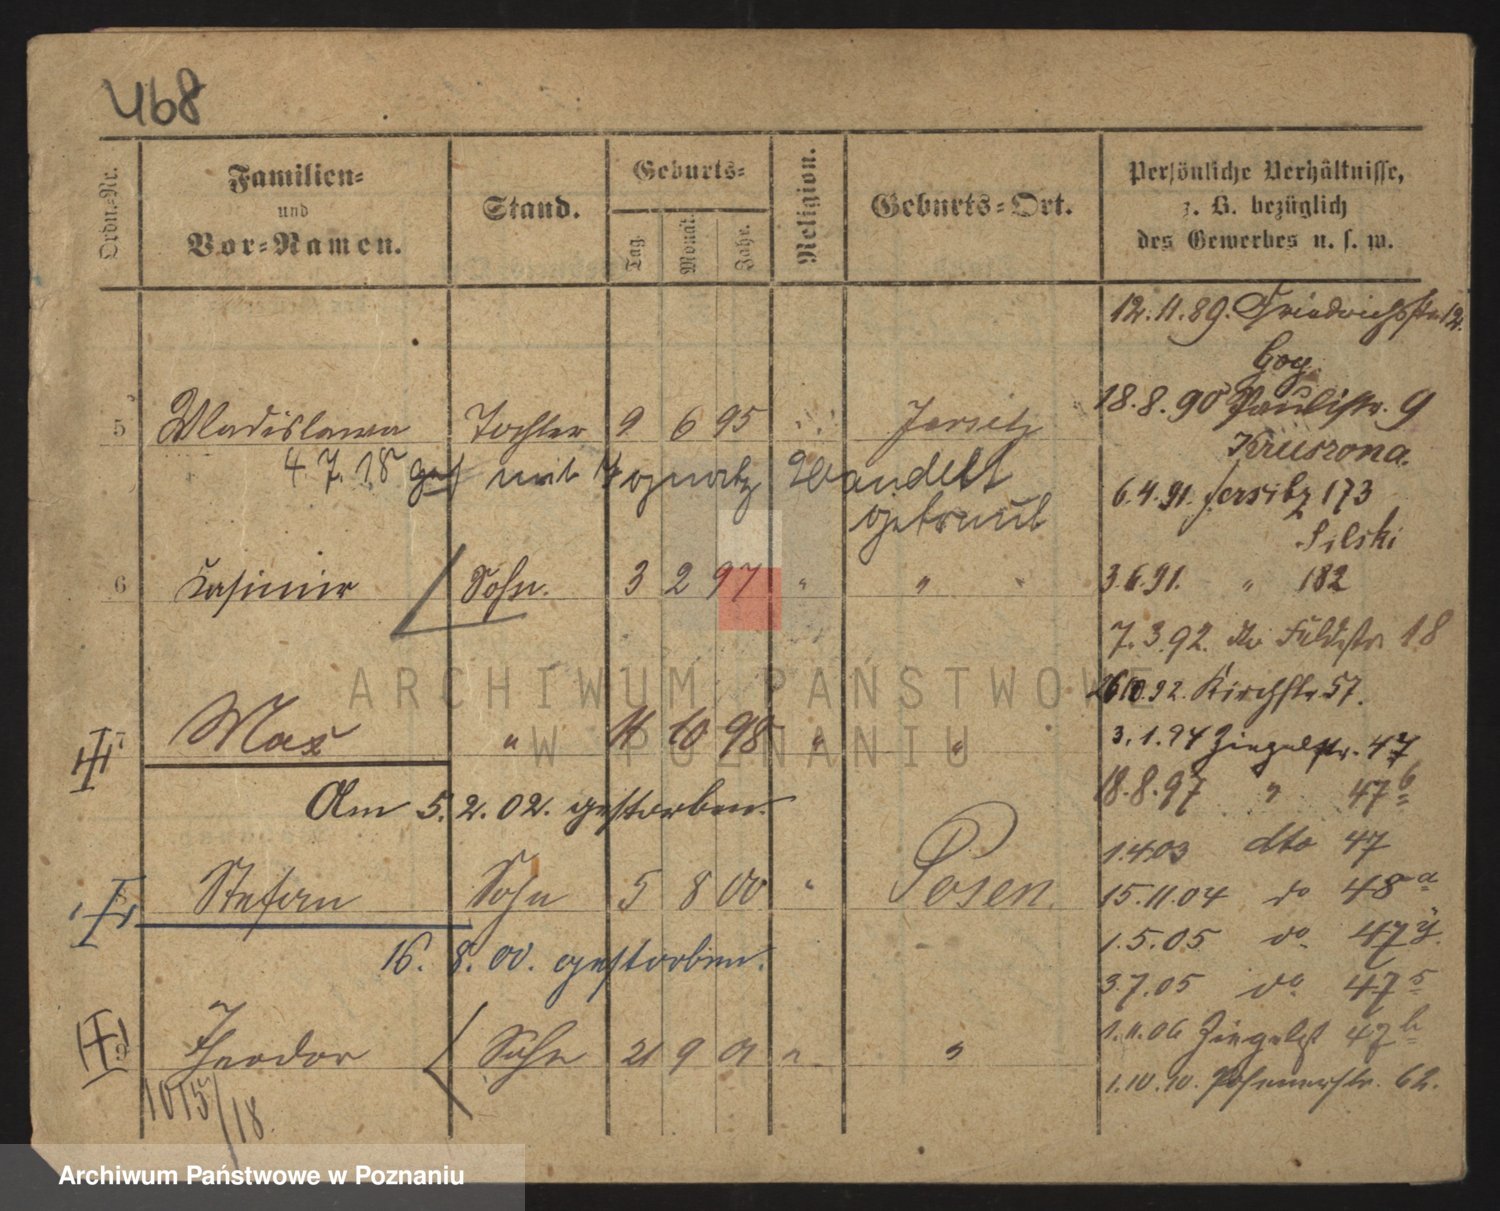 468
Ordn.-Nr.
Familien-
und
Vor-Namen.
Stand.
Geburts-
Tag. Monat. Jahr.
Religion.
Geburts-Ort.
Persönliche Verhältnisse,
z. B. bezüglich
des Gewerbes u. s. w.
12.11.89. Friedrichsstr. 12.
18.8.90 Paulistr. 9
5 Wladislawa Tochter 9 6 95 " Jersitz
Kruszona.
4.7.18 mit Ignatz Wandelt
getraut
6.4.91. Jersitz 173
Silski
6 Kasimir Sohn. 3 2 97 " "
3.6.91. " 182
7.3.92. do Feldstr. 18
26.10.92. Kirchstr. 57.
7 Max " 11 10 98 " "
3.1.94 Ziegelstr. 47
Am 5.2.02. gestorben.
18.8.97 " 47 b
1.4.03 dto 47
Stefan Sohn 5 8 00 " Posen.
15.11.04 do 48 a
16.8.00. gestorben.
1.5.05 do 47
3.7.05 do 47
9 Theodor Sohn 21 9 01 " "
1.11.06 Ziegelst 47
1.10.10. Posenerstr. 62.
1015/18.
ARCHIWUM PAŃSTWOWE
W POZNANIU
Archiwum Państwowe w Poznaniu